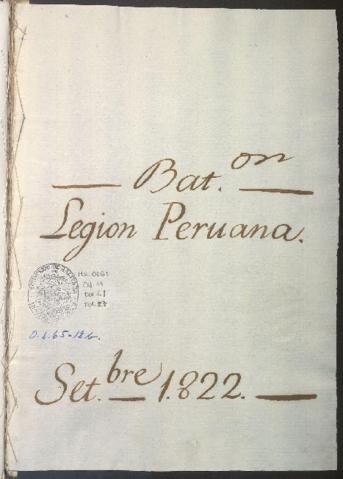 Bat.on
Legion Peruana.
O.L.65-126.
Set.bre 1.822.